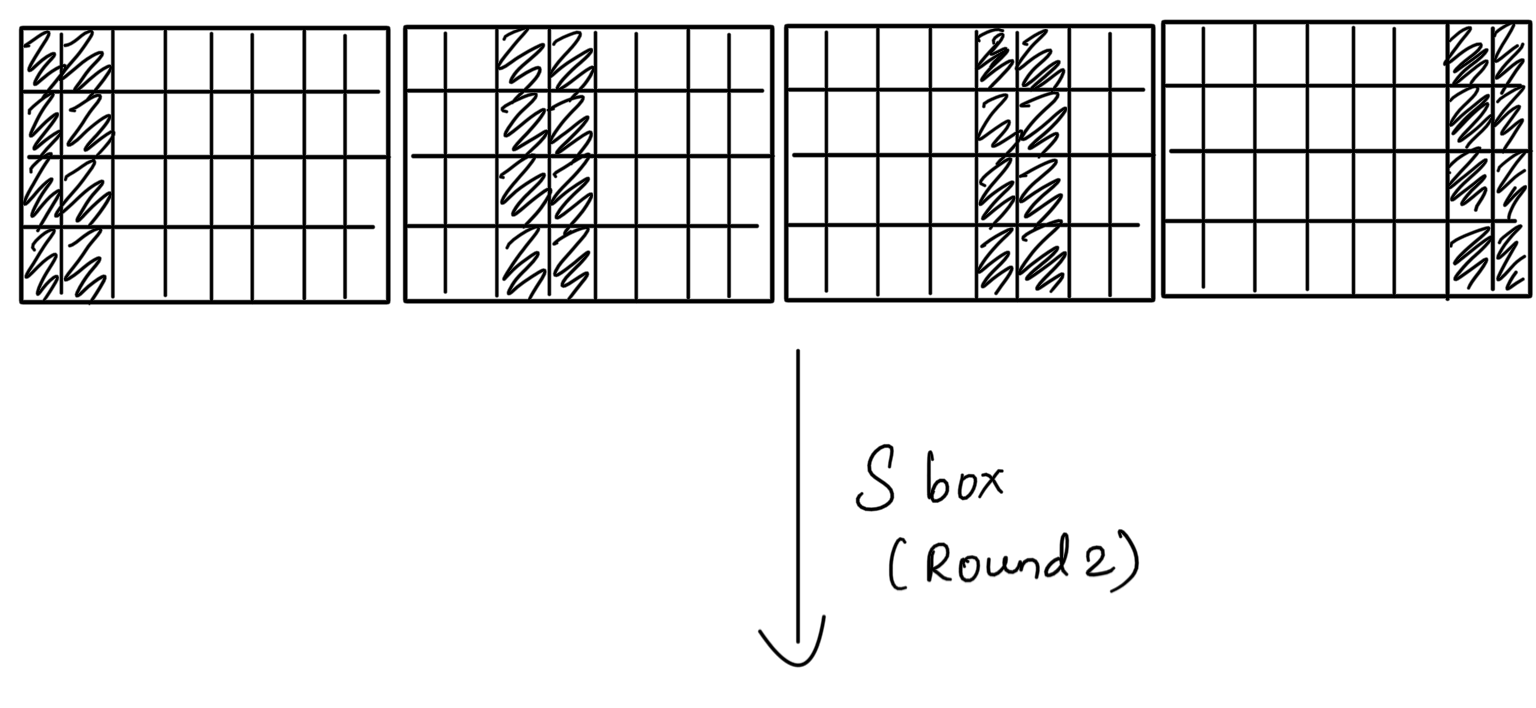 S box
(Round 2)